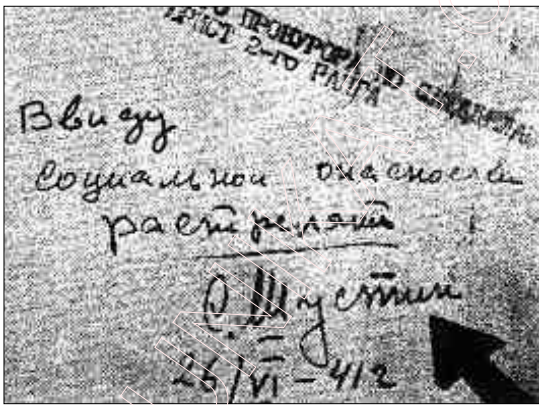 ПРОКУРОРА ПО
ЮРИСТ 2-ГО РАНГА
Ввиду
социальной опасности
растрелять
Шустин
26/VI-41г